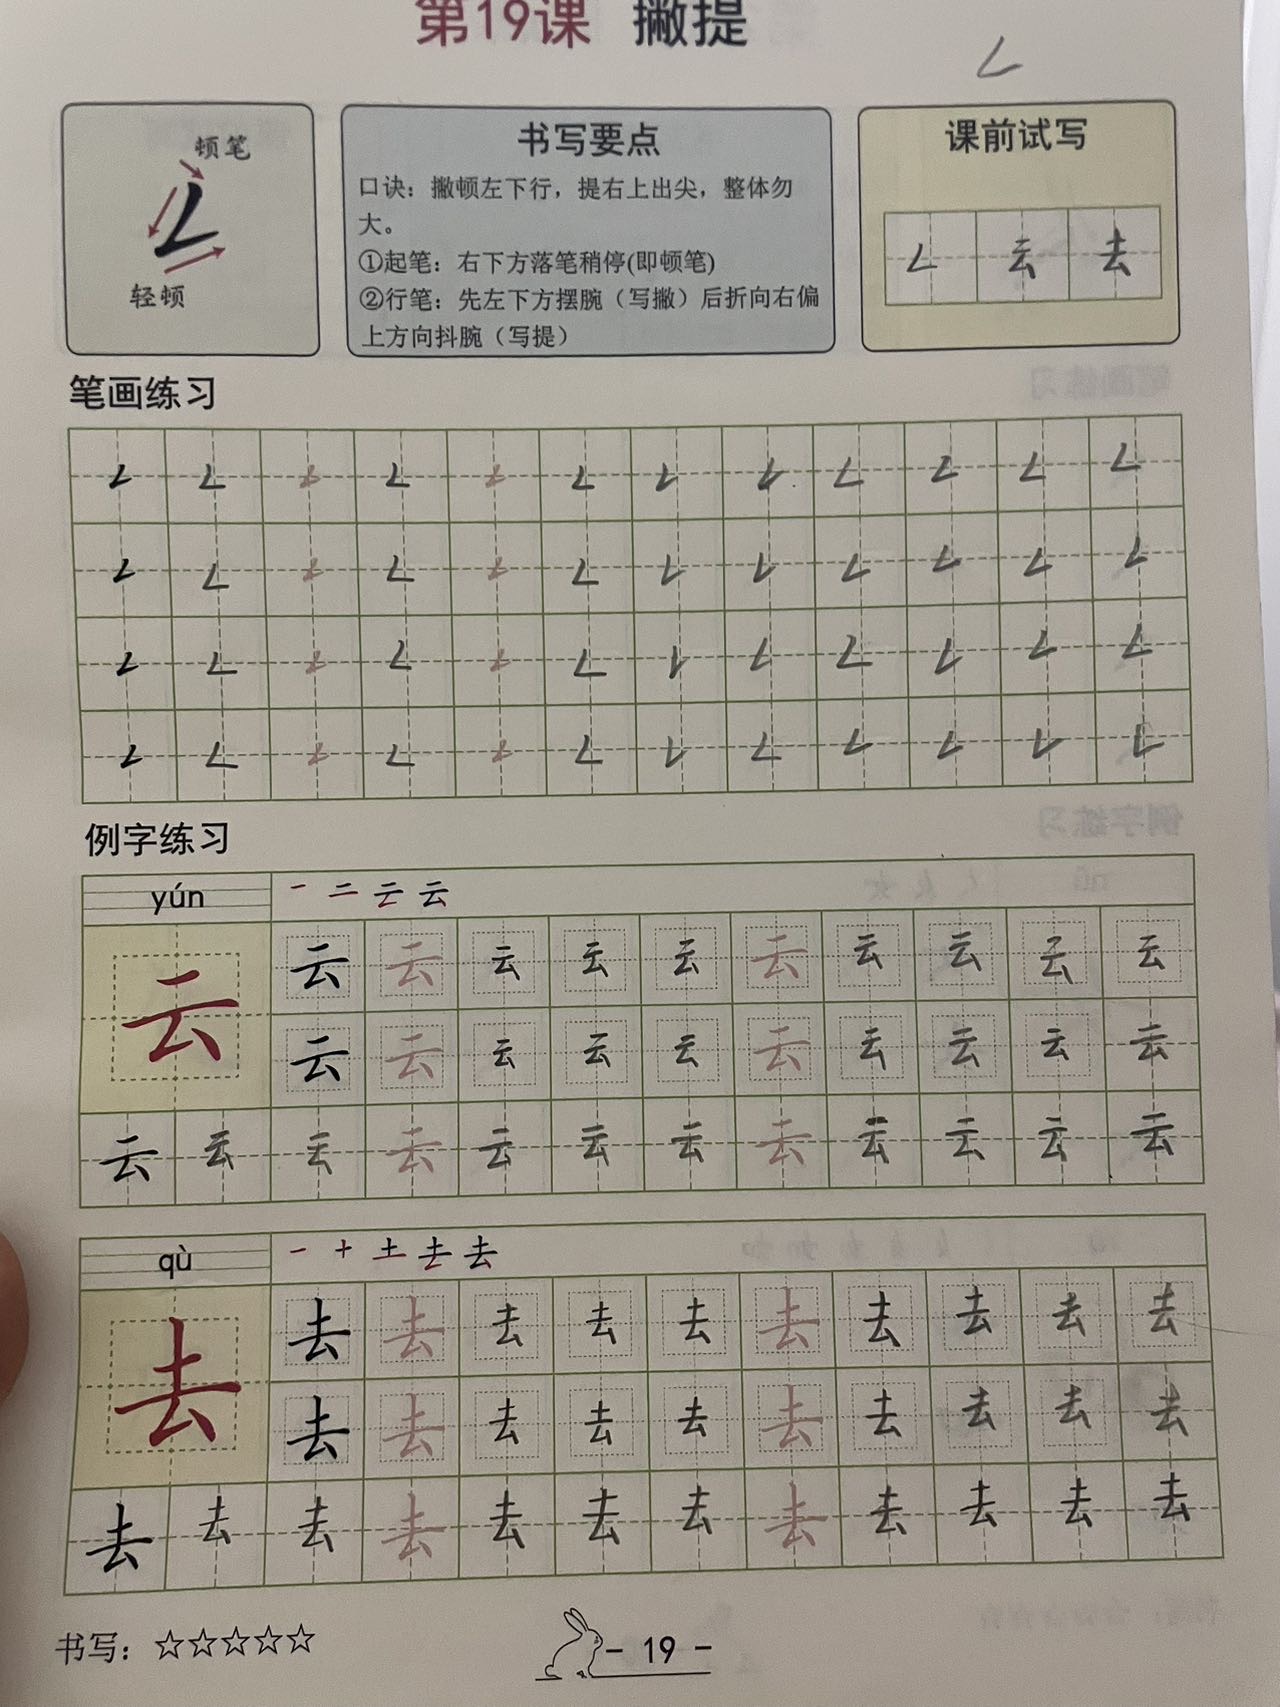 第19课 撇提
顿笔
轻顿
书写要点
口诀：撇顿左下行，提右上出尖，整体勿
大。
①起笔：右下方落笔稍停(即顿笔)
②行笔：先左下方摆腕（写撇）后折向右偏
上方向抖腕（写提）
课前试写
云 去
笔画练习
例字练习
yún
云
云 云 云 云 云 云 云 云 云 云 云
云 云 云 云 云 云 云 云 云 云
云 云 云 云 云 云 云 云 云 云 云 云
qù
去
去 去 去 去 去 去 去 去 去 去 去
去 去 去 去 去 去 去 去 去 去
去 去 去 去 去 去 去 去 去 去 去 去
书写：☆☆☆☆☆
- 19 -